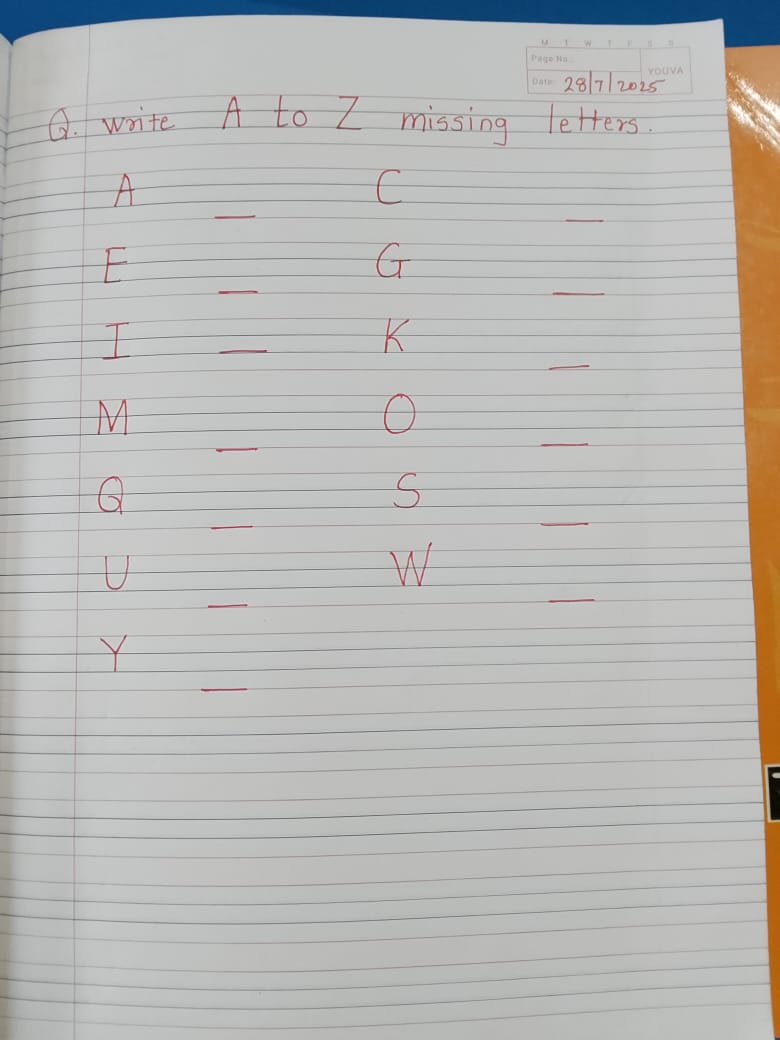 M T W T F S S
Page No.:
YOUVA
Date: 28/7/2025
Q. write A to Z missing letters.
A _ C _
E _ G _
I _ K _
M _ O _
Q _ S _
U _ W _
Y _